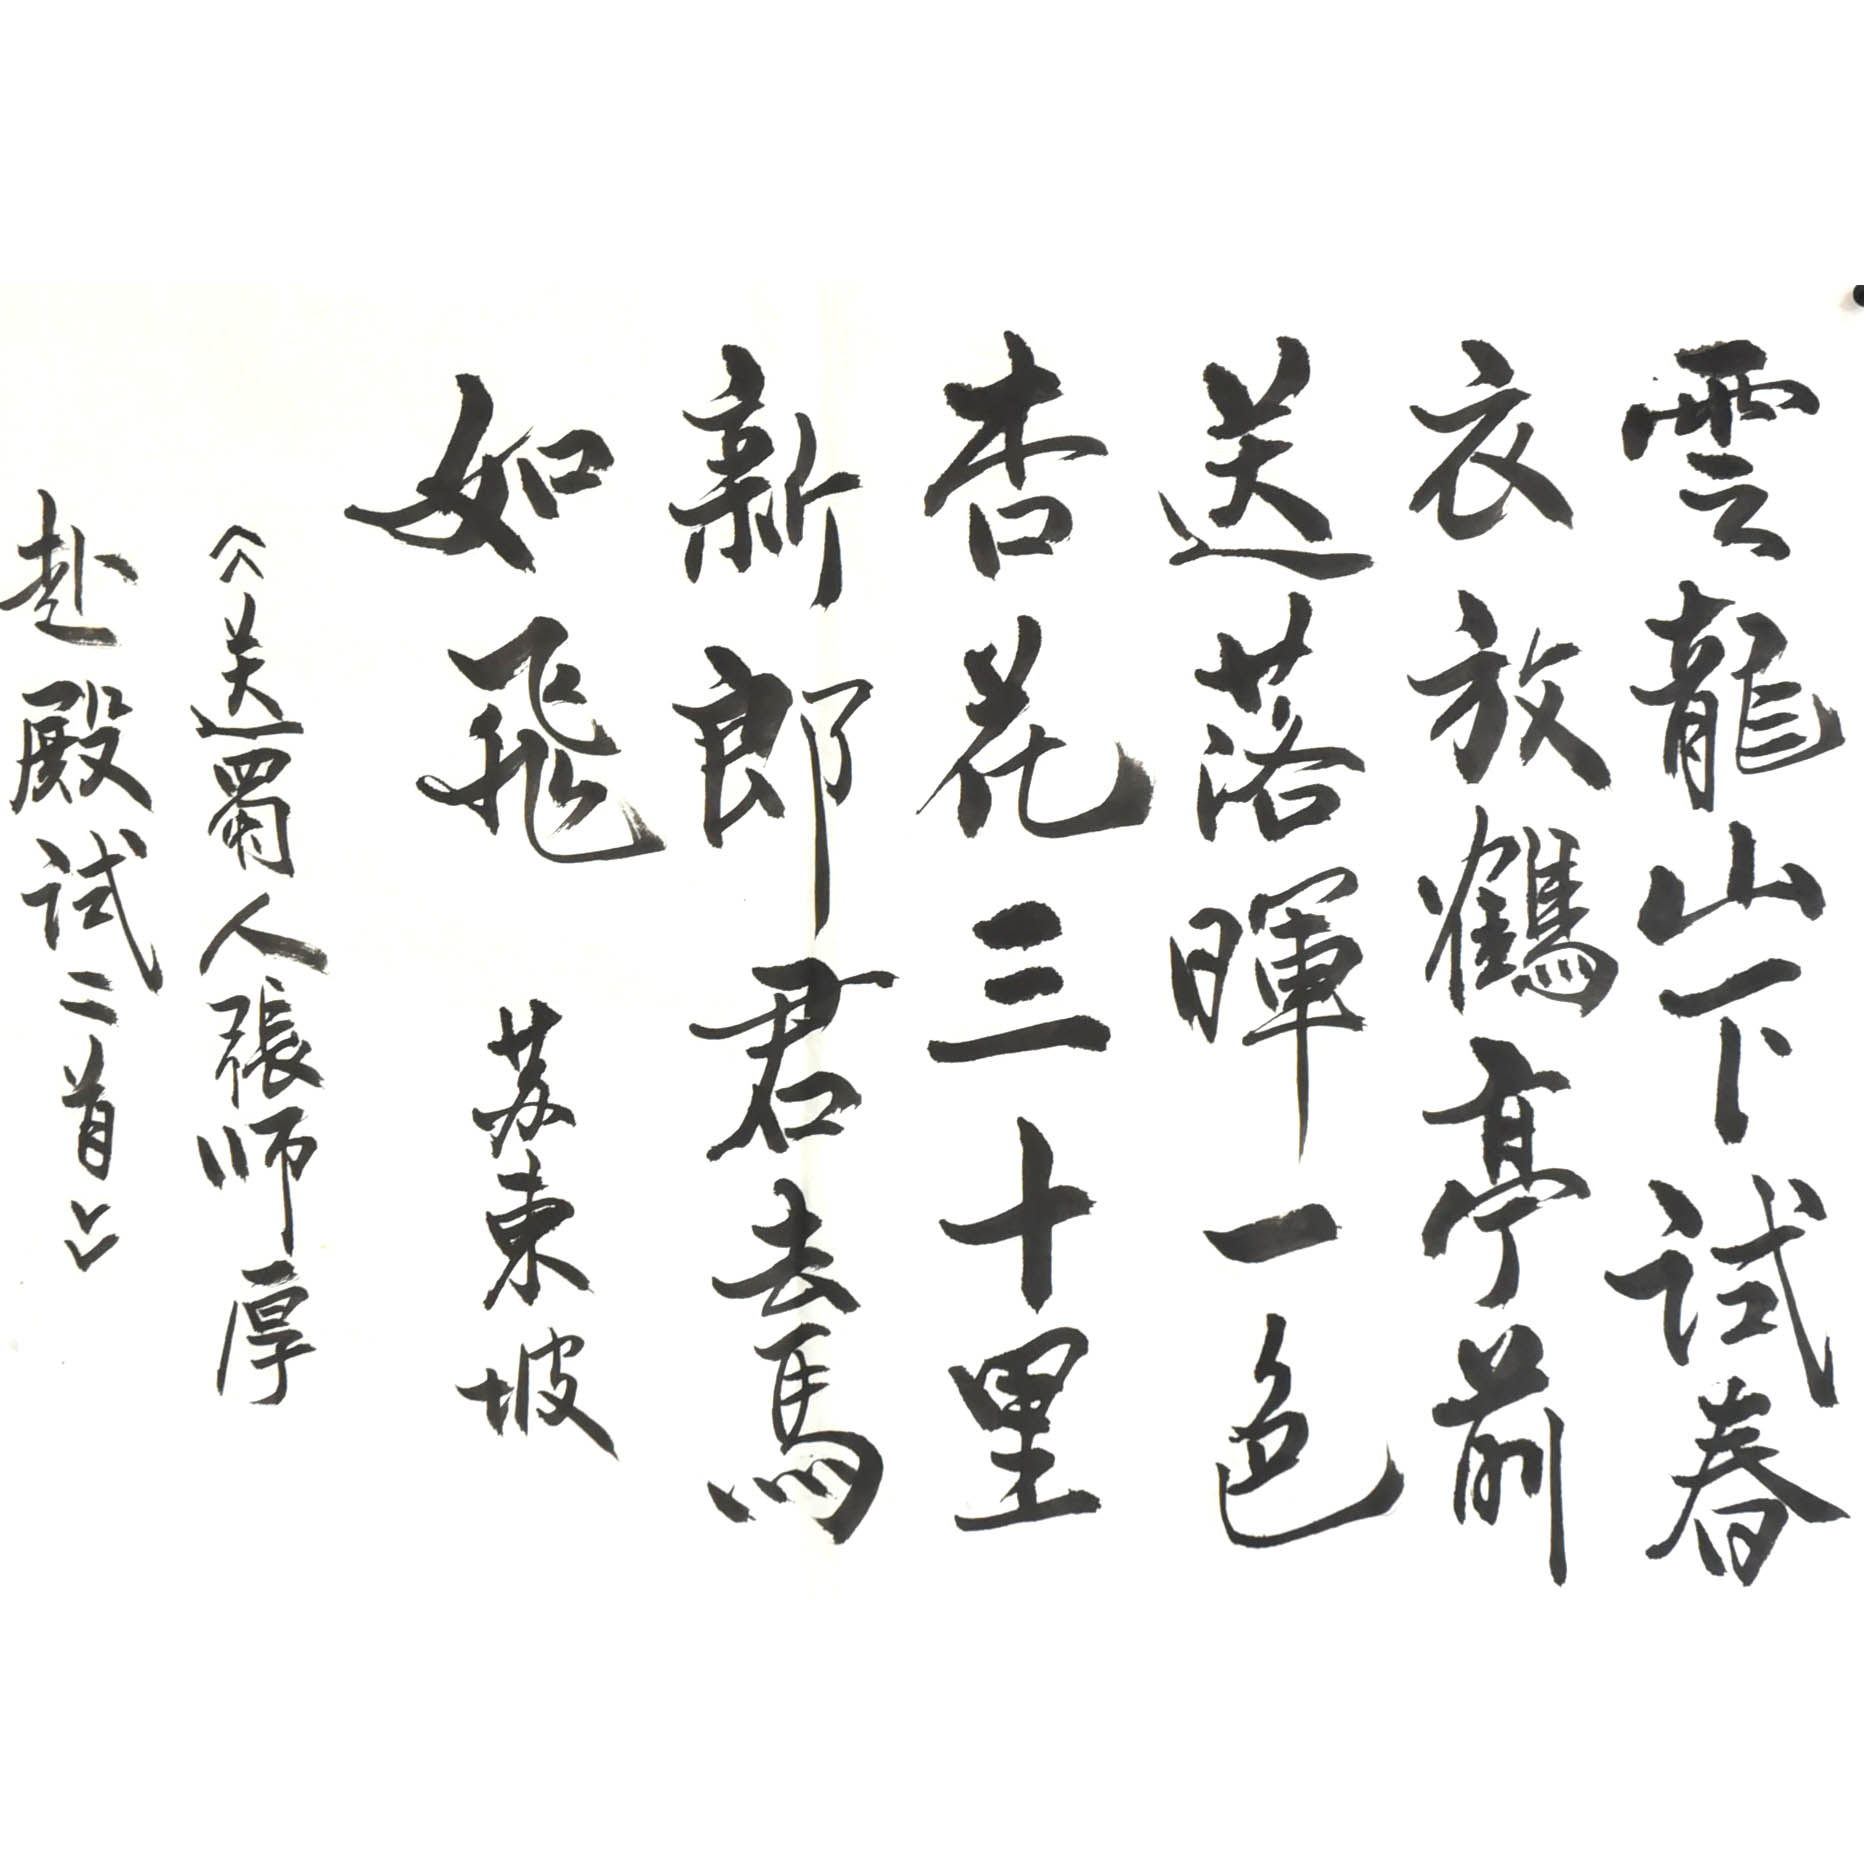 雲龍山下试春
衣放鶴亭前
送落暉一色
杏花三十里
新郎君去馬
如飛
苏東坡
《送蜀人張师厚
赴殿试二首》